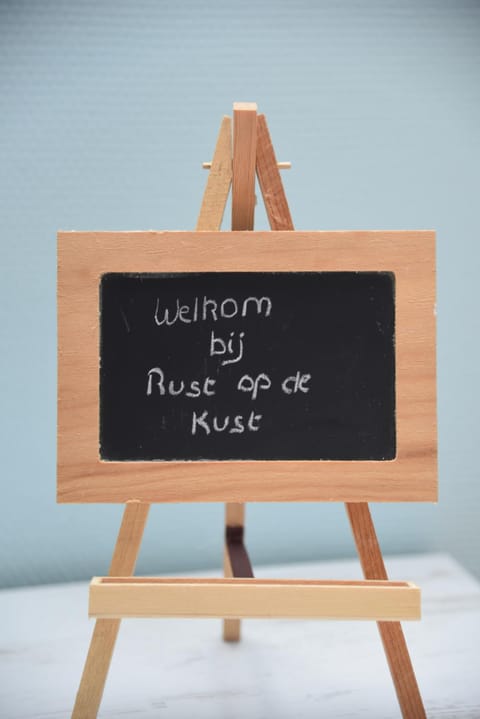 Welkom
bij
Rust op de
Kust